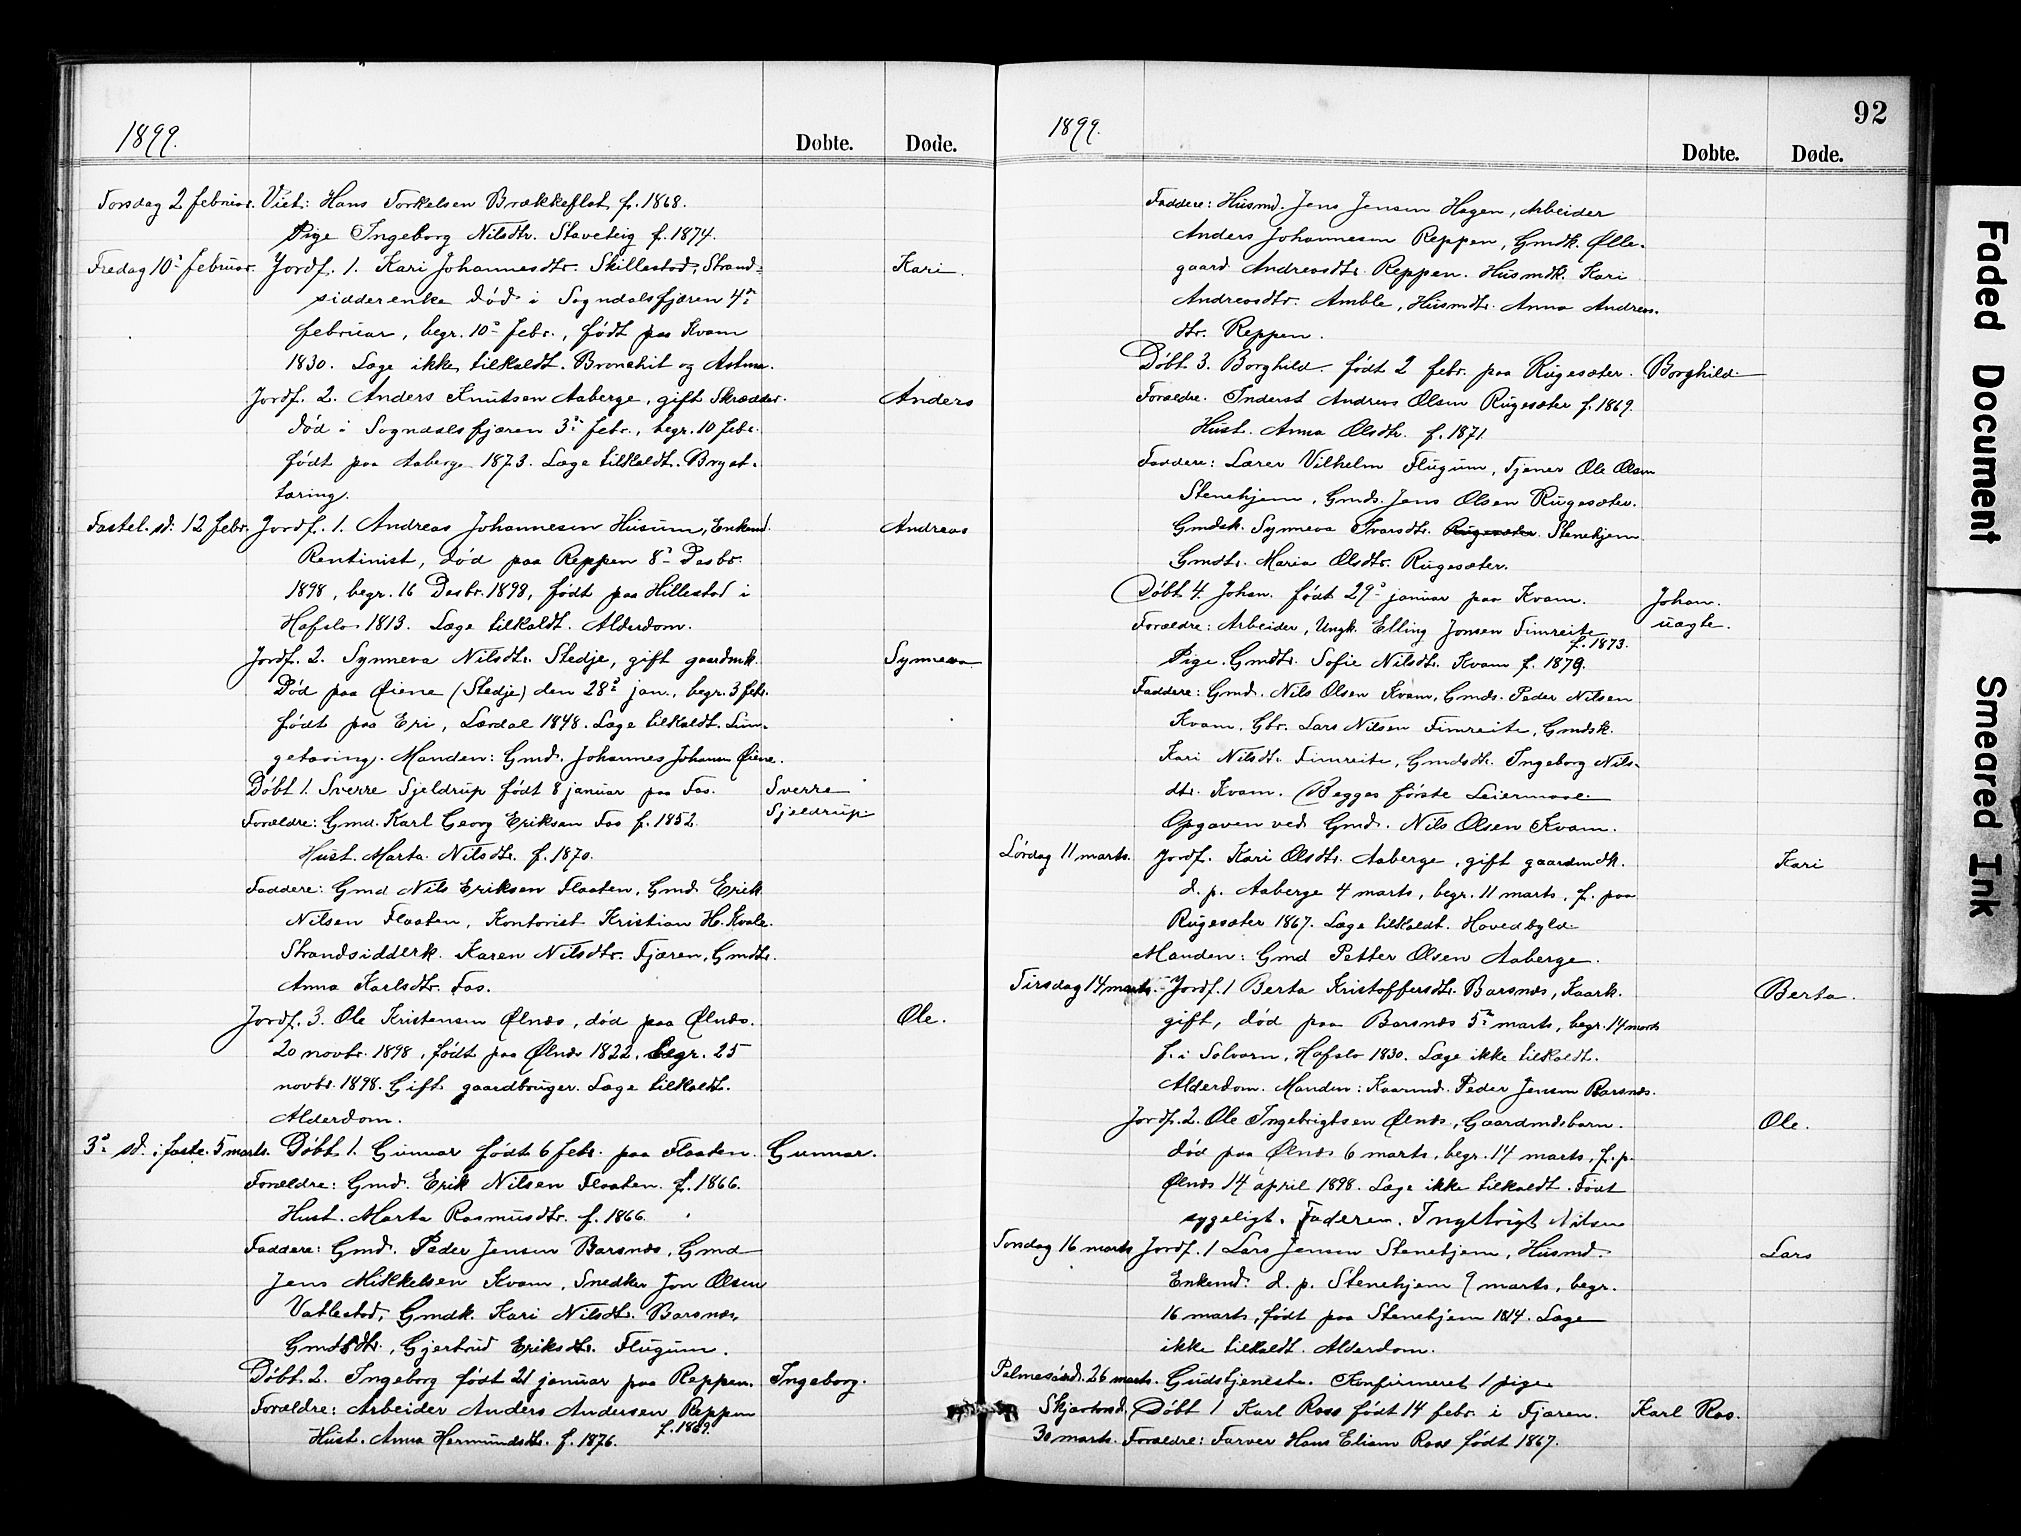 1899.
Døbte.
Døde.
Torsdag 2 februar. Viet: Hans Torkelsen Brækkeflat f. 1868.
Pige Ingeborg Nilsdtr. Staveteig f. 1874.
Fredag 10de februar. Jordf. 1. Kari Johannesdtr. Skillestad, Strand- Kari.
sidderenke død i Sogndalsfjæren 4de
februar, begr. 10de febr., født paa Kvam
1830. Læge ikke tilkaldt. Bronchit og Astma.
Jordf. 2. Anders Knutsen Aaberge, gift Skrædder. Anders
død i Sogndalsfjæren 3de febr., begr. 10 febr.
født paa Aaberge 1873. Læge tilkaldt. Bryst-
tæring.
Fastel. sd. 12 febr. Jordf. 1. Andreas Johannesen Husum, Enkemd. Andreas
Rentinist, død paa Reppen 8de Desbr.
1898, begr. 16 Desbr. 1898, født paa Hillestad i
Hafslo 1813. Læge tilkaldt. Alderdom.
Jordf. 2. Synneva Nilsdtr. Stedje, gift gaardmk. Synneva
Død paa Øiene (Stedje) den 28de jan., begr. 3 febr.
født paa Eri, Lærdal 1848. Læge tilkaldt. Lun-
getæring. Manden: Gmd. Johannes Johansen Øiene.
Døbt 1. Sverre Sjeldrup født 8 januar paa Fos. Sverre
Sjeldrup.
Forældre: Gmd. Karl Georg Eriksen Fos f. 1852.
Hust. Marta Nilsdtr. f. 1870.
Faddere: Gmd Nils Eriksen Flaaten, Gmd. Erik
Nilsen Flaaten, Kontorist Kristian H. Kvale.
Strandsidderk. Karen Nilsdtr. Fjæren, Gmdtr.
Anna Karlsdtr. Fos.
Jordf. 3. Ole Kristensen Ølnæs, død paa Ølnæs. Ole.
20 novbr. 1898, født paa Ølnæs 1822, begr. 25
novbr. 1898. Gift gaardbruger. Læge tilkaldt.
Alderdom.
3de sd. i faste. 5 marts. Døbt 1. Gunnar født 6 febr. paa Flaaten. Gunnar.
Forældre: Gmd. Erik Nilsen Flaaten. f. 1866.
Hust. Marta Rasmusdtr. f. 1866.
Faddere: Gmd. Peder Jensen Barsnæs, Gmd
Jens Mikkelsen Kvam, Snedker Jon Olsen
Vatlestad, Gmdk. Kari Nilsdtr. Barsnæs,
Gmdsdtr., Gjertrud Eriksdtr. Flugum.
Døbt. 2. Ingeborg født 21 januar paa Reppen. Ingeborg.
Forældre: Arbeider Anders Andersen Reppen
f. 1869.
Hust. Anna Hermundsdtr. f. 1876.
1899.
92
Døbte.
Døde.
Faddere: Husmd. Jens Jensen Hagen, Arbeider
Anders Johannesen Reppen, Gmdk. Ølle-
gaard Andreasdtr. Reppen. Husmdk. Kari
Andreasdtr. Amble, Husmdtr. Anna Andreas-
dtr. Reppen.
Døbt 3. Borghild. født 2 febr. paa Rugesæter. Borghild.
Forældre. Inderst Andreas Olsen Rugesæter f. 1869.
Hust. Anna Olsdtr. f. 1871.
Faddere: Lærer Vilhelm Flugum, Tjener Ole Olsen
Stenehjem, Gmds. Jens Olsen Rugesæter.
Gmdsk. Synneva Ivarsdtr. Rugesæter. Stenehjem
Gmdtr. Maria Olsdtr. Rugesæter.
Døbt 4. Johan. født 29de januar paa Kvam. Johan.
uægte.
Forældre: Arbeider, Ungk. Elling Jonsen Fimreite
f. 1873.
Pige. Gmdtr. Sofie Nilsdtr. Kvam f. 1879.
Faddere: Gmd. Nils Olsen Kvam, Gmds. Peder Nilsen
Kvam, Gbr. Lars Nilsen Fimreite, Gmdsk.
Kari Nilsdtr. Fimreite, Gmdsdtr. Ingeborg Nils-
dtr. Kvam. Begges første Leiermaal.
Opgaven ved Gmd. Nils Olsen Kvam.
Lørdag 11 marts. Jordf. Kari Olsdtr. Aaberge, gift gaardmdk. Kari
d. p. Aaberge 4 marts, begr. 11 marts, f. paa
Rugesæter 1867. Læge tilkaldt. Hovedbyld.
Manden: Gmd Petter Olsen Aaberge.
Tirsdag 14 marts. Jordf. 1 Berta Kristoffersdtr. Barsnæs, Kaark. Berta.
gift, død paa Barsnæs 5te marts, begr. 14 marts
f. i Solvorn, Hafslo 1830. Læge ikke tilkaldt.
Alderdom. Manden: Kaarmd. Peder Jensen Barsnæs.
Jordf. 2. Ole Ingebrigtsen Ølnæs, Gaardmdsbarn. Ole.
død paa Ølnæs 6 marts, begr. 14 marts, f. p.
Ølnæs 14 april 1898. Læge ikke tilkaldt. Født
sygeligt. Faderen. Ingebrigt Nilsen
Torsdag 16 marts Jordf. 1 Lars Jensen Stenehjem, Husmd. Lars
Enkemd. d. p. Stenehjem 9 marts, begr.
16 marts, født paa Stenehjem 1814. Læge
ikke tilkaldt. Alderdom.
Palmesønd. 26 marts. Gudstjeneste. Konfirmeret 1 pige
Skjærtorsd. Døbt 1 Karl Ross født 14 febr. i Fjæren. Karl Ros.
30 marts. Forældre: Farver Hans Eliam Ross født 1867.
Faded Document
Smeared Ink